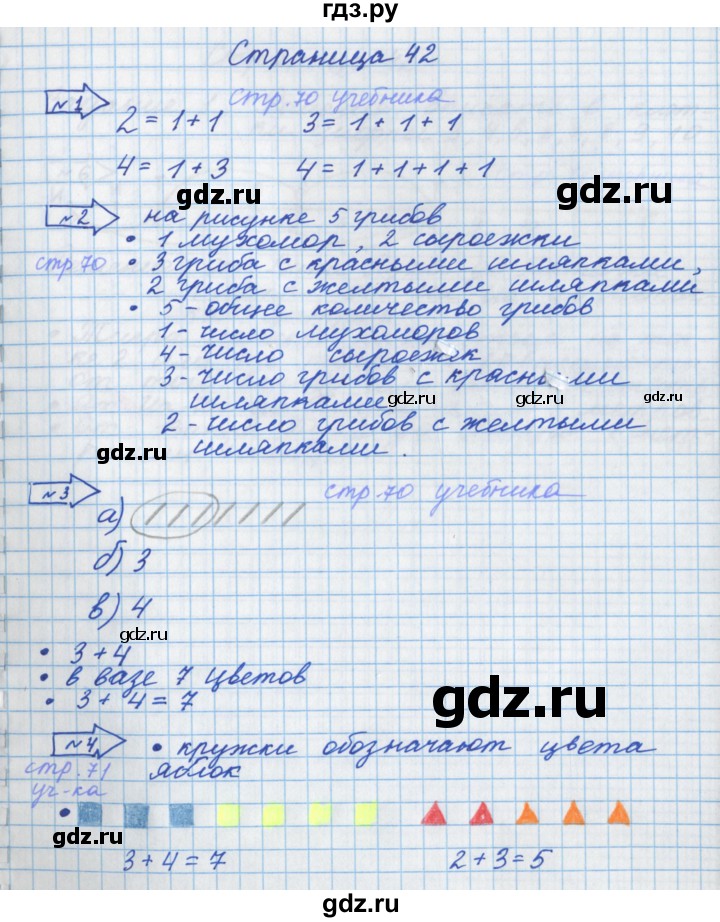 гдз.ру
Страница 42
№1 стр. 70 учебника
2 = 1 + 1 3 = 1 + 1 + 1
4 = 1 + 3 4 = 1 + 1 + 1 + 1
gdz.ru
№2 на рисунке 5 грибов
• 1 мухомор, 2 сыроежки
стр 70 • 3 гриба с красными шляпками,
2 гриба с желтыми шляпками
• 5 - общее количество грибов
1 - число мухоморов
4 - число сыроежек
3 - число грибов с красными
шляпками
gdz.ru gdz.ru gdz.ru
2 - число грибов с желтыми
gdz.ru
шляпками.
№3 стр. 70 учебника
а)
б) 3
в) 4
gdz.ru
• 3 + 4
• в вазе 7 цветов
• 3 + 4 = 7
gdz.ru
№4 • кружки обозначают цвета
стр. 71 яблок
уч-ка
gdz.ru gdz.ru
3 + 4 = 7 2 + 3 = 5
gdz.ru